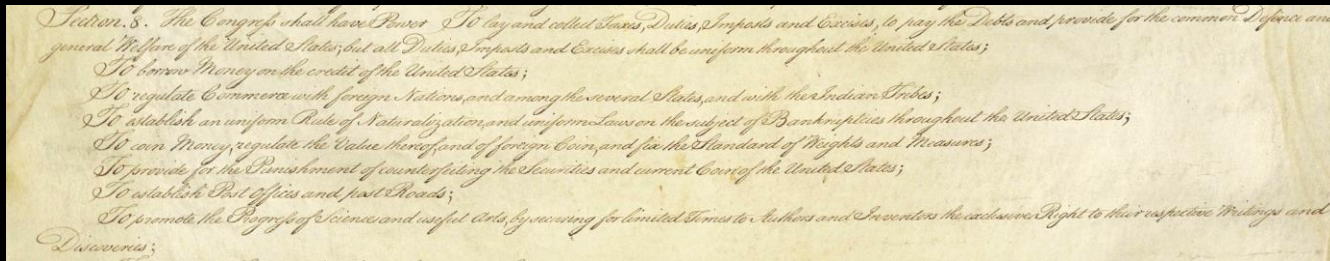 Section. 8. The Congress shall have Power To lay and collect Taxes, Duties, Imposts and Excises, to pay the Debts and provide for the common Defence and
general Welfare of the United States; but all Duties, Imposts and Excises shall be uniform throughout the United States;
To borrow Money on the credit of the United States;
To regulate Commerce with foreign Nations, and among the several States, and with the Indian Tribes;
To establish an uniform Rule of Naturalization, and uniform Laws on the subject of Bankruptcies throughout the United States;
To coin Money, regulate the Value thereof, and of foreign Coin, and fix the Standard of Weights and Measures;
To provide for the Punishment of counterfeiting the Securities and current Coin of the United States;
To establish Post Offices and post Roads;
To promote the Progress of Science and useful Arts, by securing for limited Times to Authors and Inventors the exclusive Right to their respective Writings and
Discoveries;